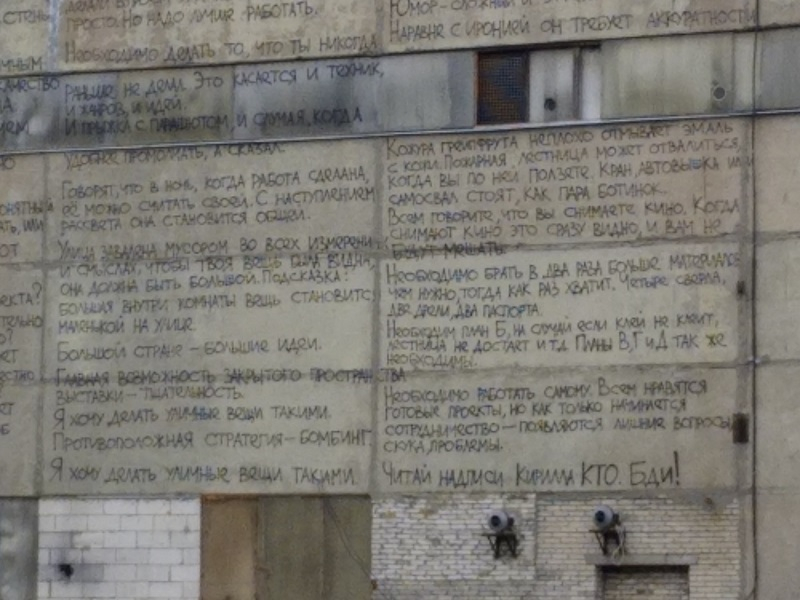 стены
чным
качество
ла.
ем
но
понятный
ать, или
от
екта?
тельно
о?
ет
ество
ет
б
просто. Но надо лучше работать.
Необходимо делать то, что ты никогда
раньше не делал. Это касается и техник,
и жанров, и идей.
И прыжка с парашютом, и случая, когда
удобнее промолчать, а сказал.
Говорят, что в ночь, когда работа сделана,
её можно считать своей. С наступлением
рассвета она становится общей.
Улица завалена мусором во всех измерени
и смыслах, чтобы твоя вещь была видна,
она должна быть большой. Подсказка:
большая внутри комнаты вещь становится
маленькой на улице.
Большой стране — большие идеи.
Главная возможность закрытого пространства
выставки — тщательность.
Я хочу делать уличные вещи такими.
Противоположная стратегия — бомбинг.
Я хочу делать уличные вещи такими.
Юмор - сложный и
Наравне с иронией он требует аккуратности
Кожура грейпфрута неплохо отмывает эмаль
с кожи. Пожарная лестница может отвалиться,
когда вы по ней ползете. Кран, автовышка или
самосвал стоят, как пара ботинок.
Всем говорите, что вы снимаете кино. Когда
снимают кино это сразу видно, и вам не
будут мешать.
Необходимо брать в два раза больше материалов
чем нужно, тогда как раз хватит. Четыре сверла,
две дрели, два паспорта.
Необходим план Б, на случай если клей не клеит,
лестница не достает и т.д. Планы В, Г и Д так же
необходимы.
Необходимо работать самому. Всем нравятся
готовые проекты, но как только начинается
сотрудничество — появляются лишние вопросы,
скука, проблемы.
Читай надписи Кирилла КТО. Бди!